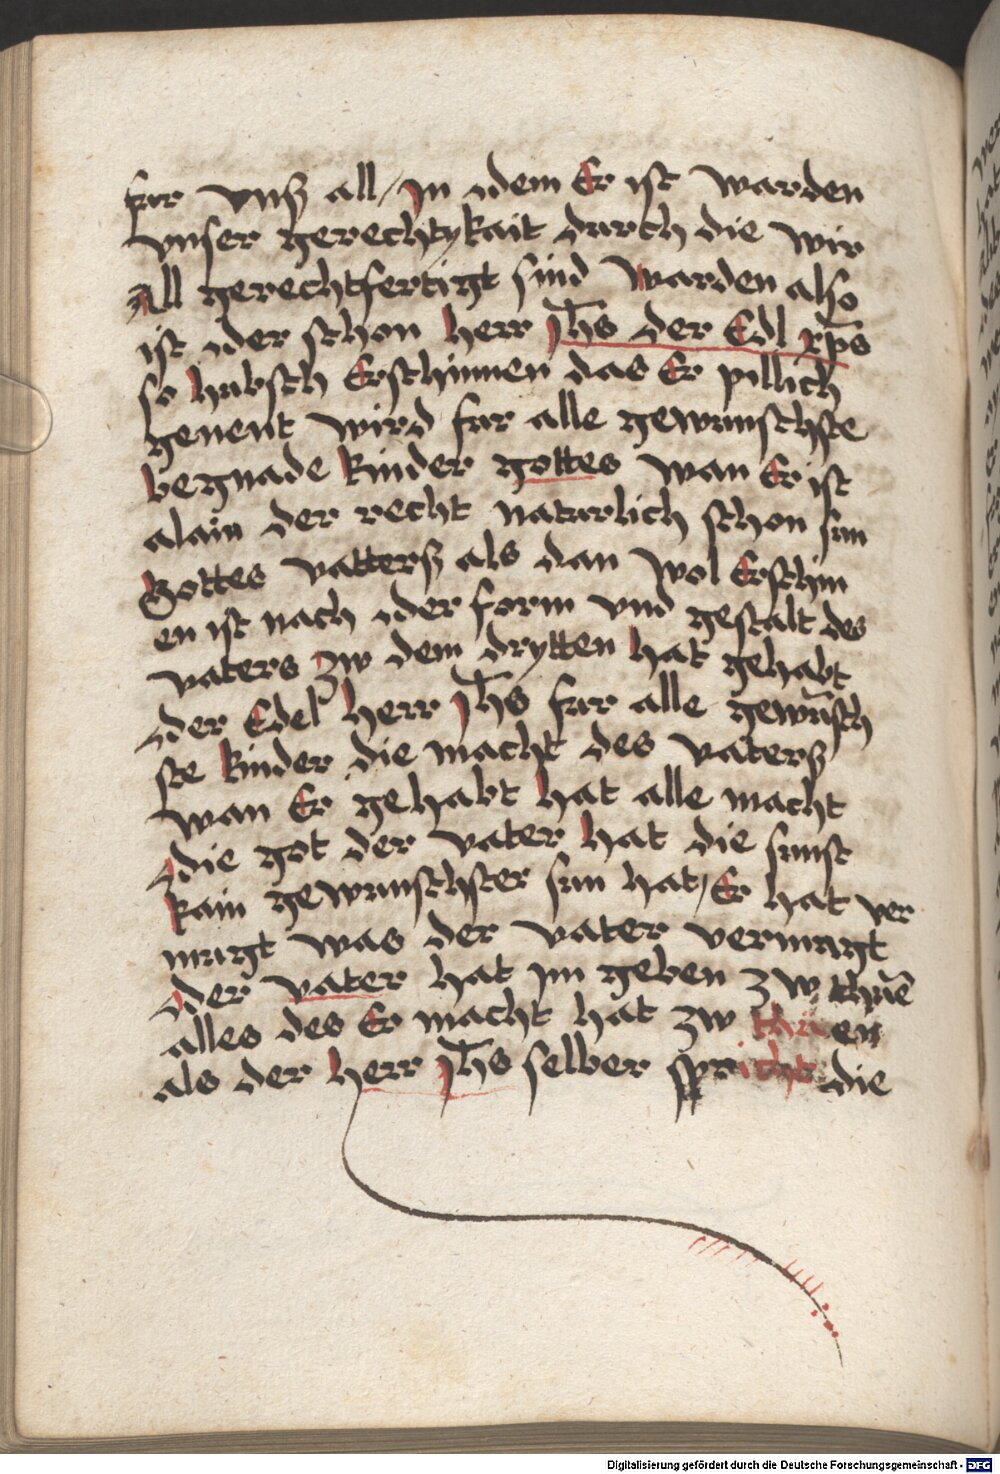 fur vnß all / Jn dem Er ist warden
vnser gerechtykait durch die wir
All gerechtfertigt sind warden also
ist der schon herr Jh̄s der Edl xp̄s
so hubsch Erschinnen das Er pillich
genent wird fur alle gewunschste
begnade kinder gottes wan Er ist
alain der recht naturlich schon sun
Gottes vatterß als dan wol Erschin
en ist nach der form vnd gestalt des
vaters zw dem drytten hat gehabt
der Edel herr Jh̄s fur alle gewūsch
ste kinder die macht des vaterß
wan Er gehabt hat alle macht
die got der vater hat die sunst
kain gewunschster sun hat / Er hat ver
mugt was der vater vermugt
der vater hat im geben zw thuē
alles des Er macht hat zw thuen
als der herr Jh̄s selber spricht die
Digitalisierung gefördert durch die Deutsche Forschungsgemeinschaft - DFG